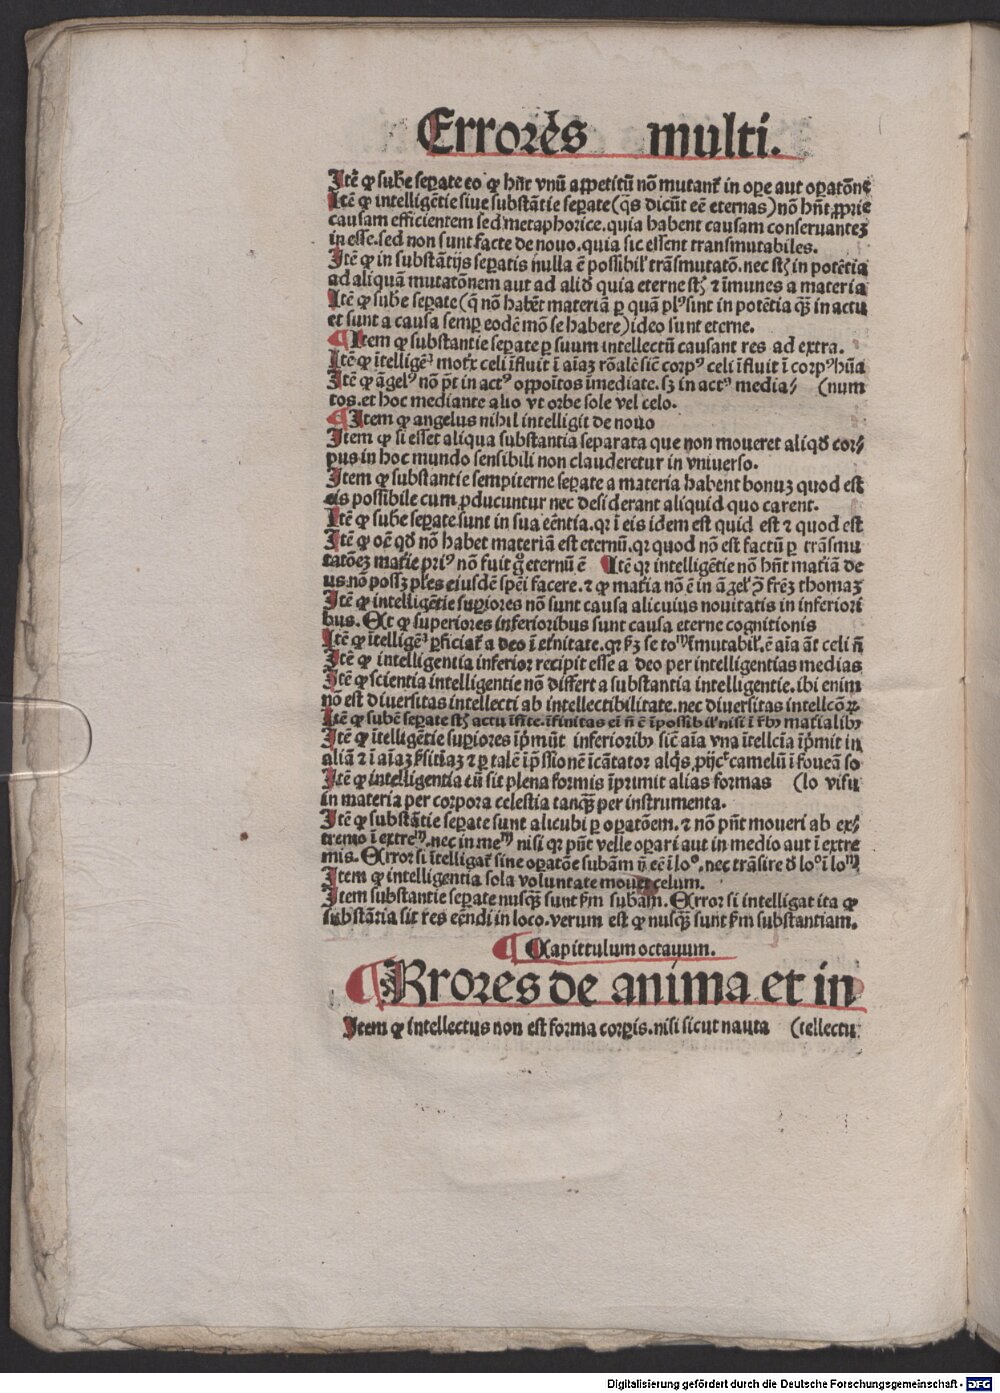 Errores multi.
Itē ꝙ sub̄e sep̱ate eo ꝙ hn̄t vnū appetitū nō mutant᷑ in op̱e aut op̱atōne
Itē ꝙ intelligētie siue substātie sep̱ate (q̄s dicūt eē eternas) nō hn̄t ꝓprie
causam efficientem sed metaphorice. quia habent causam conseruanteꝫ
in esse. sed non sunt facte de nouo. quia sic essent transmutabiles.
Itē ꝙ in substātijs sep̱atis nulla ē possibil' trāsmutatō. nec sꝫ in potētia
ad aliquā mutatōnem aut ad aliḋ quia eterne sꝫ ⁊ īmunes a materia
Itē ꝙ sub̄e sep̱ate (q̄ nō habēt materiā ꝑ quā plꝰ sint in potētia qꝫ̄ in actu
et sunt a causa semꝑ eodē mō se habere) ideo sunt eterne.
Item ꝙ substantie sep̱ate ꝑ suum intellectū causant res ad extra.
Itē ꝙ ītelligē motꝝ celi īfluit ī aīaꝫ rōalē sic̄ corpꝰ celi īfluit ī corpꝰ hūa
Itē ꝙ āgelꝰ nō p̄t in actꝰ oppoītos īmediate. sꝫ in actꝰ media⸗ (num
tos. et hoc mediante alio vt orbe sole vel celo.
Item ꝙ angelus nihil intelligit de nouo
Item ꝙ si esset aliqua substantia separata que non moueret aliqḋ cor⸗
pus in hoc mundo sensibili non clauderetur in vniuerso.
Item ꝙ substantie sempiterne sep̱ate a materia habent bonuꝫ quod est
eis possibile cum ꝓducuntur nec desiderant aliquid quo carent.
Itē ꝙ sub̄e sep̱ate sunt in sua eēntia. qꝛ ī eis idem est quid est ⁊ quod est
Itē ꝙ oē qḋ nō habet materiā est eternū. qꝛ quod nō est factū ꝑ trāsmu
tatōeꝫ mat̄ie priꝰ nō fuit g̊ eternū ē Itē qꝛ intelligētie nō hn̄t mat̄iā de
us nō possꝫ pl̄es eiusdē sp̄ei facere. ⁊ ꝙ mat̄ia nō ē in āgel' ↄ̄ frēꝫ thomaꝫ
Itē ꝙ intelligētie suꝑiores nō sunt causa alicuius nouitatis in inferiori
bus. Et ꝙ superiores inferioribus sunt causa eterne cognitionis
Itē ꝙ intelligentia inferior recipit esse a deo per intelligentias medias
Itē ꝙ scientia intelligentie nō differt a substantia intelligentie. ibi enim
nō est diuersitas intellecti ab intellectibilitate. nec diuersitas intellcōꝝ
Itē ꝙ ītelligētie suꝑiores īp̄mūt inferioribꝰ sic̄ aīa vna ītellc̄ia īp̄mit in
Itē ꝙ intelligentia cū sit plena formis īprimit alias formas (lo visu
in materia per corpora celestia tanqꝫ̄ per instrumenta.
Itē ꝙ substātie sep̱ate sunt alicubi ꝑ op̱atōem. ⁊ nō pn̄t moueri ab ex⸗
tremo ī extreᵐ. nec in meᵐ nisi qꝛ pn̄t velle op̱ari aut in medio aut ī extre
mis. Error si ītelligat᷑ sine op̱atōne subām
Item ꝙ intelligentia sola voluntate mouet celum.
Item substantie sep̱ate nusqꝫ̄ sunt ẜm subam. Error si intelligat ita ꝙ
substātia sit res eēndi in loco. verum est ꝙ nusqꝫ̄ sunt ẜm substantiam.
Capittulum octauum.
ERrores de anima et in
Item ꝙ intellectus non est forma corp̱is. nisi sicut nauta (tellectu
Digitalisierung gefördert durch die Deutsche Forschungsgemeinschaft - DFG